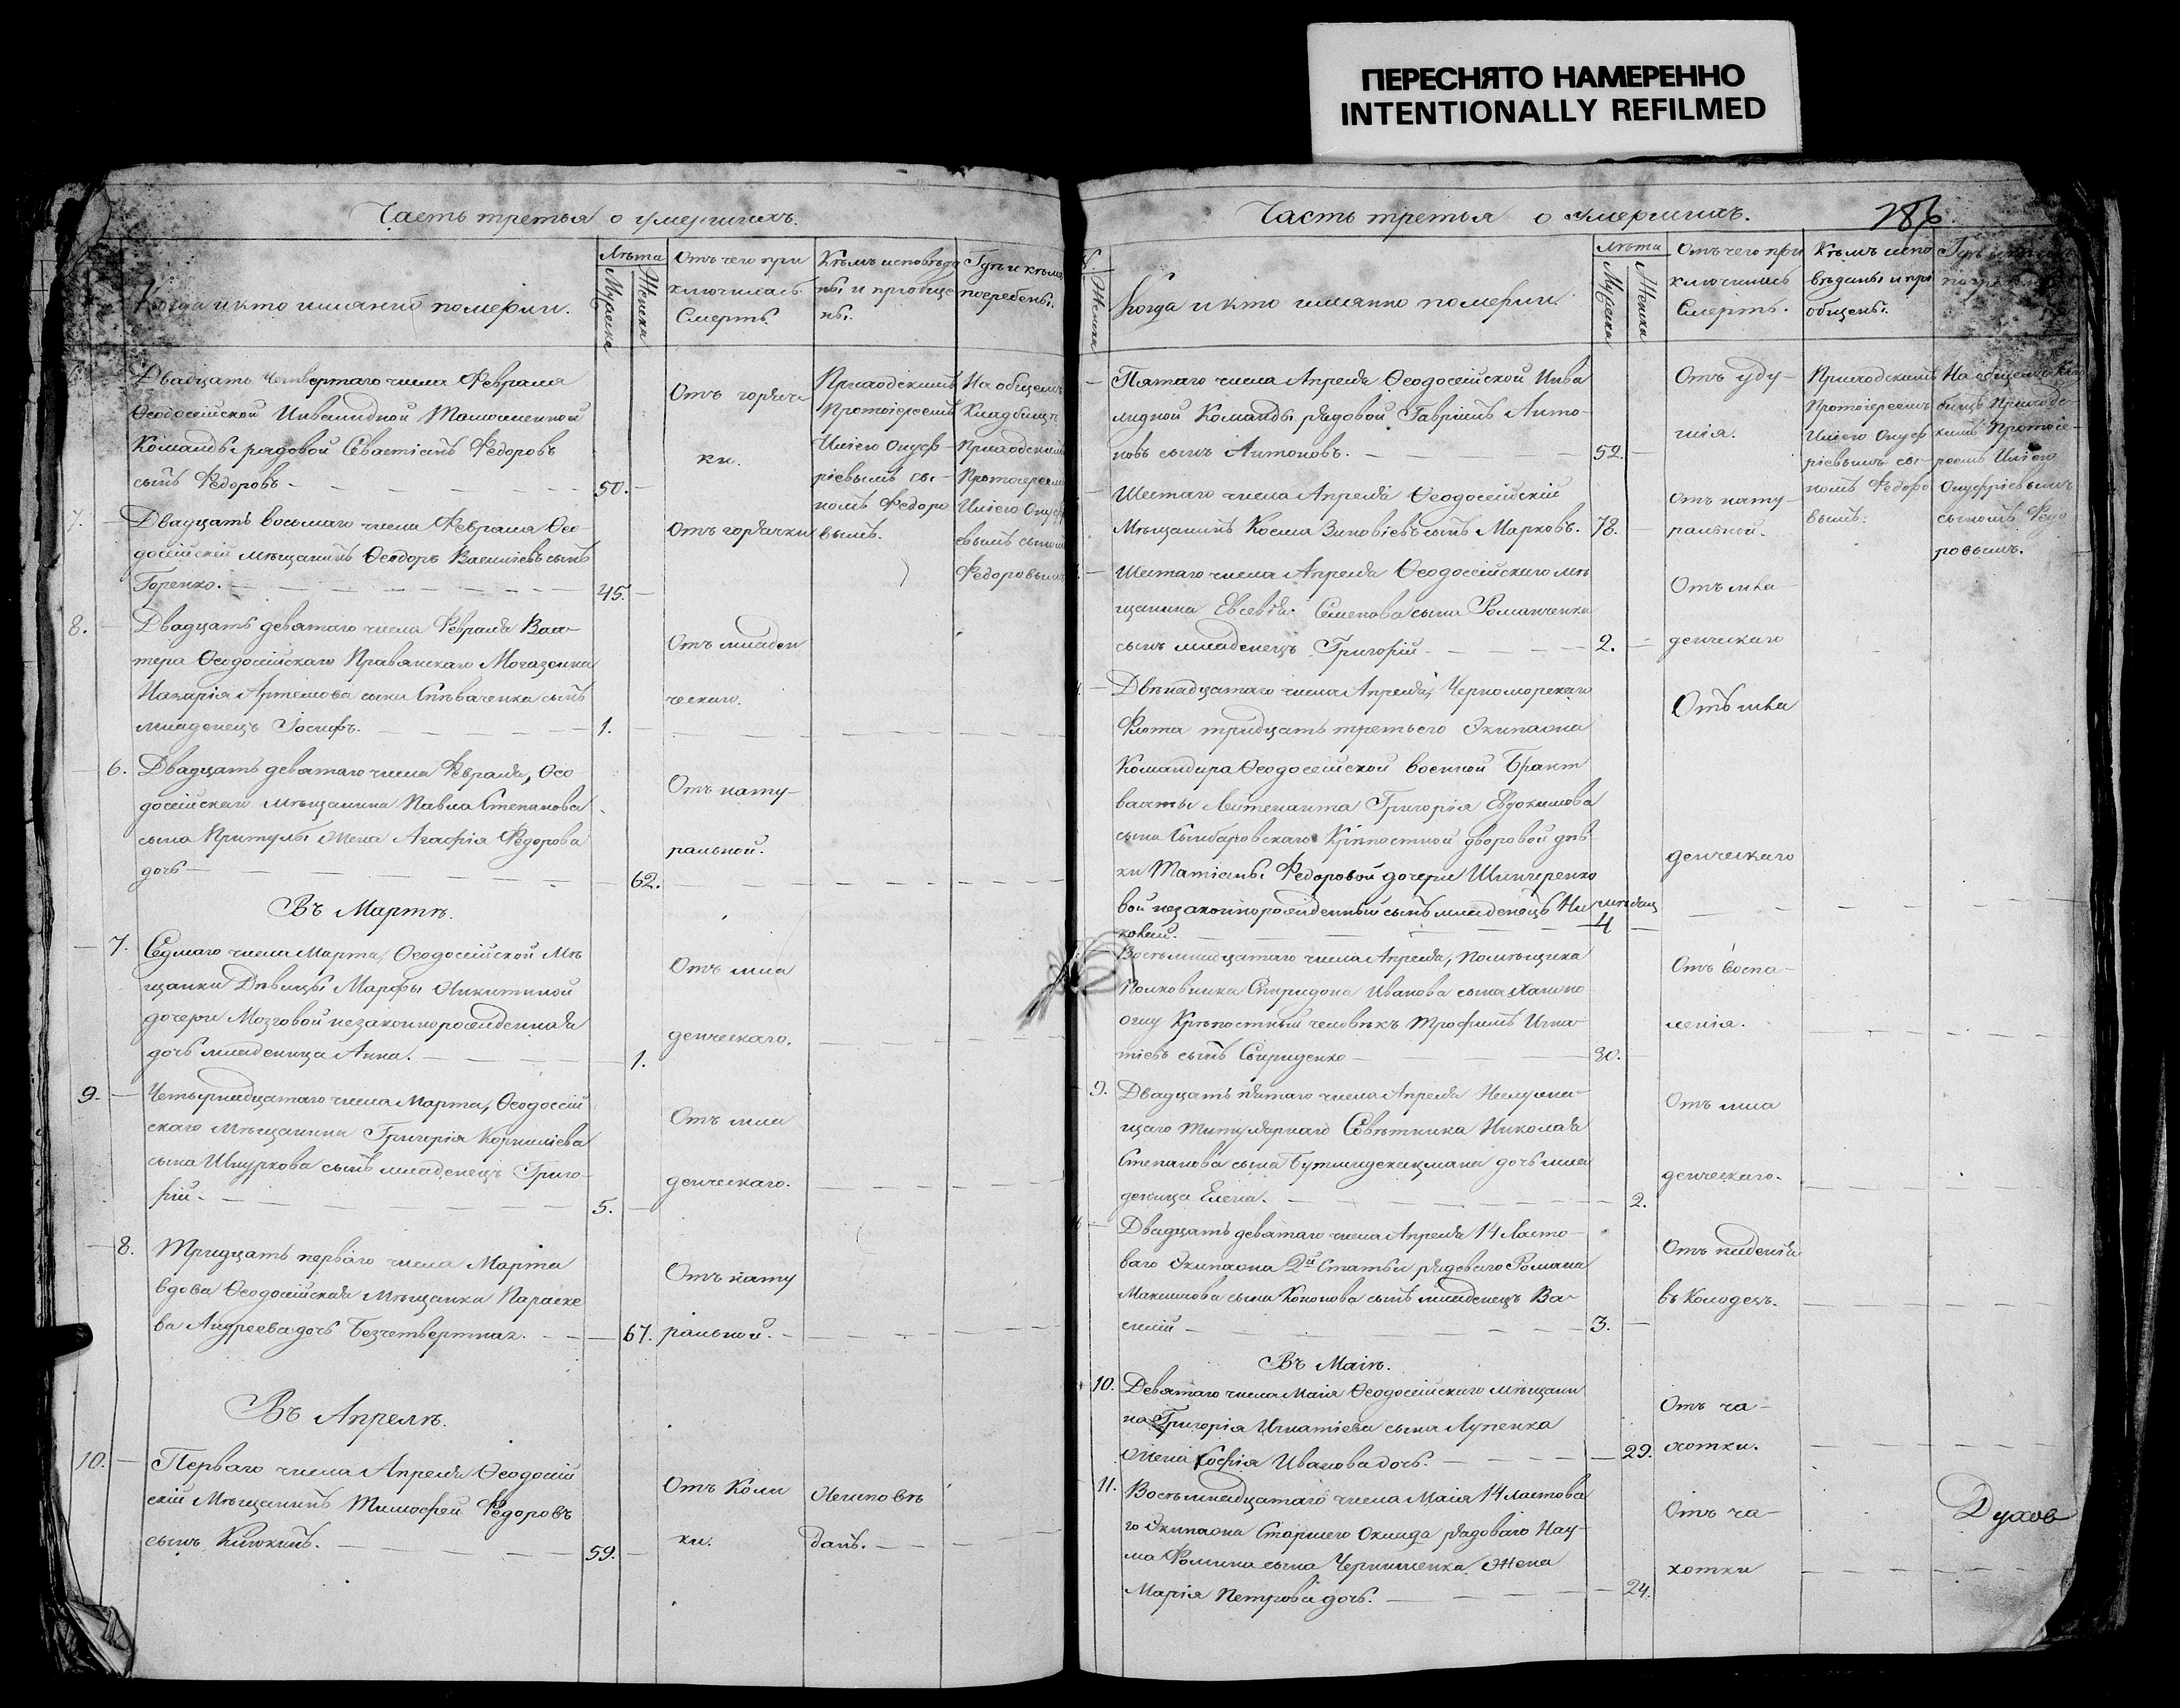 ПЕРЕСНЯТО НАМЕРЕННО
INTENTIONALLY REFILMED
Часть третья о умершихъ.
Когда и кто имянно померли.
Лѣта
Мужеска
Женска
Отъ чего при
ключилась
Смерть.
Кѣмъ исповѣда
ны и приобще
ны.
Гдѣ и кѣмъ
погребены.
Двадцать четвертаго числа Февраля
Ѳеодосійской Инвалидной
Команды рядовой Севастіянъ Федоровъ
сынъ Федоровъ
50.
Отъ горячи
ки.
Приходскимъ
Протоіереемъ
Иліею Онуф-
ріевымъ сы-
номъ Федоро
вымъ.
На общемъ
Кладбищѣ
Приходскимъ
Протоіереемъ
Иліею
сыномъ
Федоровымъ
7.
Двадцать восьмаго числа Февраля Ѳео-
досійскій мѣщанинъ Ѳеодоръ Васильевъ сынъ
Горенко.
45.
Отъ горячки
8.
Двадцать девятаго числа Февраля Вах-
тера Ѳеодосійскаго
Назарія Артемова сына сынъ
младенецъ Іосифъ.
1.
Отъ младен
ческаго.
6.
Двадцать девятаго числа Февраля, Ѳео
досійскаго мѣщанина Павла Степанова
сына Притулы жена Агафія Федорова
дочь
62.
Отъ нату-
ральной.
Въ Мартѣ.
7.
Седмаго числа Марта, Ѳеодосійской Мѣ
щанки Дѣвицы Марфы Никитиной
дочери Мозговой незаконнорожденная
дочь младеница Анна.
1.
Отъ мла
денческаго.
9.
Четырнадцатаго числа Марта, Ѳеодосій
скаго Мѣщанина Григорія Корнилiева
сына Шнуркова сынъ младенецъ Григо-
рій.
5.
Отъ мла
денческаго.
8.
Тридцать перваго числа Марта
вдова Ѳеодосійская Мѣщанка Параске
ва Андреева дочь
67.
Отъ нату
ральной.
Въ Апрелѣ.
10.
Перваго числа Апреля Ѳеодосій
скій Мѣщанинъ Тимофей Федоровъ
сынъ
59.
Отъ Коли
ки.
Неисповѣ
данъ.
Часть третья о умершихъ.
286
Женска
Когда и кто имянно померли.
Лѣта
Мужеска
Женска
Отъ чего при
ключилась
Смерть.
Кѣмъ испо
вѣданы и прі
общены.
Гдѣ и кѣмъ
Пятаго числа Апреля Ѳеодосійской Инва
лидной Команды рядовой Гавріилъ Анто-
новъ сынъ Антоновъ.
52.
Отъ уду-
шія.
Приходскимъ
Протоіереемъ
Иліею Онуф
ріевымъ сы-
номъ Федоро
вымъ.
На общемъ Клад
бищѣ Приходс-
кимъ Протоіе-
реемъ Иліею
Онуфріевымъ
сыномъ Федо
ровымъ.
Шестаго числа Апреля Ѳеодосійскій
Мѣщанинъ Косма Зиновіевъ сынъ Марковъ.
78.
Отъ нату-
ральной.
Шестаго числа Апреля Ѳеодосійскаго мѣ
щанина Евсевія Семенова сына Романченка
сынъ младенецъ Григорій
2.
Отъ мла
денческаго
Двѣнадцатаго числа Апреля, Черноморскаго
Флота тридцать третьего Экипажа
Командира Ѳеодосійской военной Брант
вахты Лейтенанта Григорія Евдокимова
сына Крѣпостной дворовой дѣв
ки Татіаны Федоровой дочери
вой незаконнорожденный сынъ младенецъ Ни
колай.
4
Отъ мла
денческаго
Восемнадцатаго числа Апреля, помѣщика
Полковника Спиридона Иванова сына
Крѣпостный человѣкъ Трофимъ Игна
тіевъ сынъ Свириденко
30.
Отъ воспа-
ленія.
9.
Двадцать пятаго числа Апреля Неслужа-
щаго Титулярнаго Совѣтника Николая
Степанова сына дочь мла
деница Елена.
2.
Отъ мла
денческаго.
Двадцать девятаго числа Апреля 14 Ласто-
ваго Экипажа 2й Статьи рядоваго Романа
Максимова сына Кононова сынъ младенецъ Ва-
силій
3.
Отъ паденія
въ Колодезь.
Въ Маіѣ.
10.
Девятаго числа Маія Ѳеодосійскаго мѣщани
на Григорія Игнатіева сына Лупенка
жена Софія Иванова дочь.
29.
Отъ ча-
хотки.
11.
Восемнадцатаго числа Маія 14 ластова
го Экипажа Старшего рядоваго Нау-
ма Фомина сына Чернышенка жена
Марія Петрова дочь.
24.
Отъ ча-
хотки
Духов